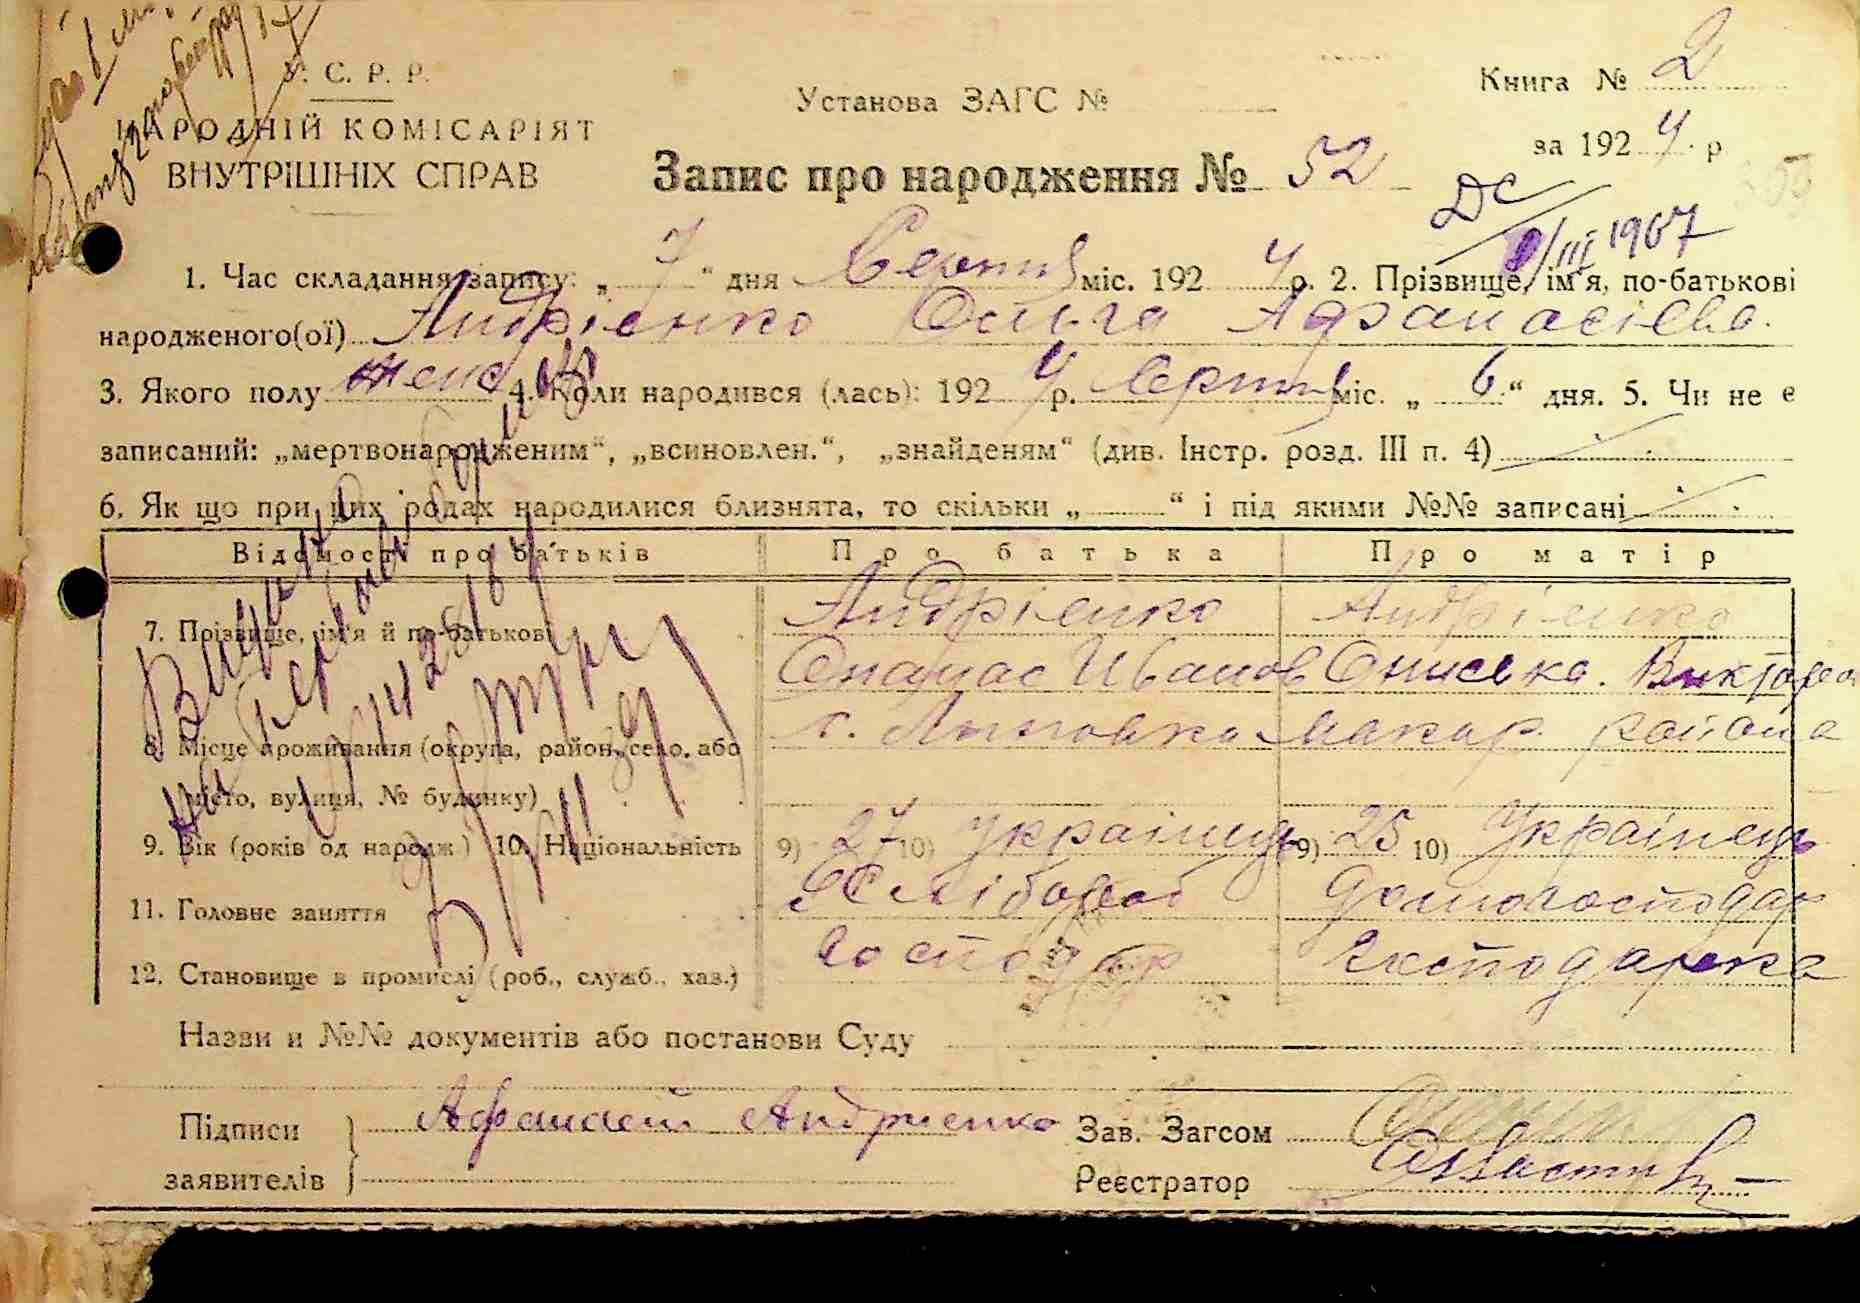 У. С. Р. Р.
НАРОДНІЙ КОМІСАРІЯТ
ВНУТРІШНІХ СПРАВ
Установа ЗАГС №
Книга № 2
за 1924 р
Запис про народження № 52
ДС
9/III 1967
1. Час складання запису: „ 7 “ дня Серпня міс. 1924 р. 2. Прізвище, ім'я, по-батькові
народженого(ої) Андрієнко Ольга Афанасієва.
3. Якого полу женс 4. Коли народився (лась): 1924 р. Серпня міс. „ 6 “ дня. 5. Чи не є
записаний: „мертвонародженим“, „всиновлен.“, „знайденям“ (див. Інстр. розд. III п. 4)
6. Як що при цих родах народилися близнята, то скільки „ “ і під якими №№ записані
Відомості про батьків Про батька Про матір
7. Прізвище, ім'я й по-батькові Андрієнко Андрієнко
Опанас Иванов Ониська. Виктора
8. Місце проживання (округа, район, село, або с. Макар. района
місто, вулиця, № будинку)
9. Вік (років од народж.) 10. Національність 9) 27 10) Українець 9) 25 10) Українець
11. Головне заняття Хлібороб домогосподар
12. Становище в промислі (роб., служб., хаз.) Господар Господарка
Назви и №№ документів або постанови Суду
Підписи Афанасий Андриенко Зав. Загсом
заявителів Реєстратор